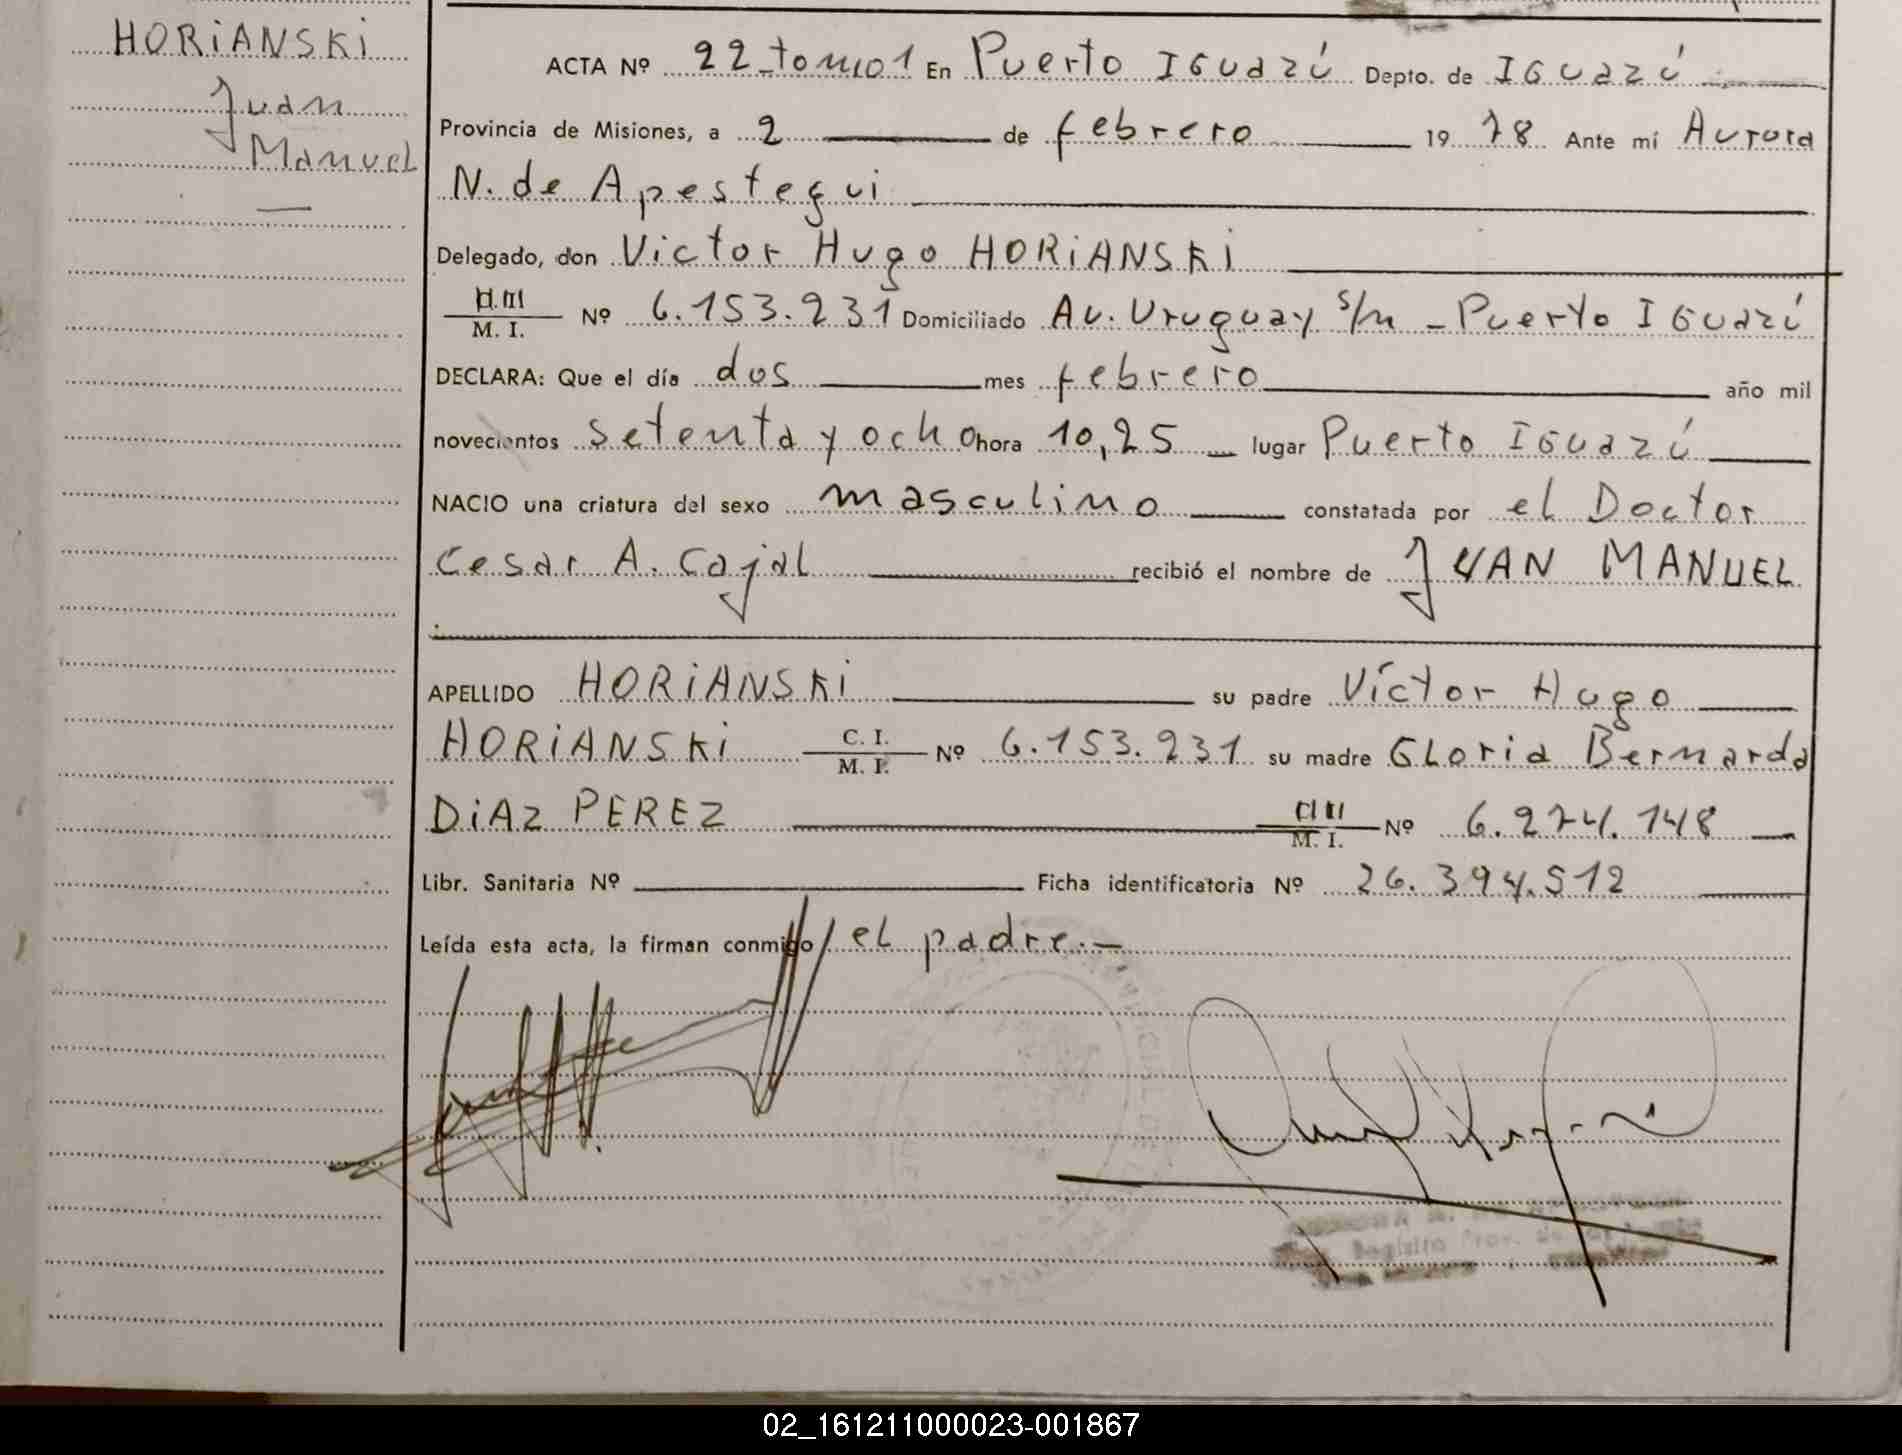 HORiANSKi
Juan
Manuel
ACTA Nº 22 tomo 1 En Puerto IGuazú Depto. de IGuazú
Provincia de Misiones, a 2 de febrero 19 78 Ante mí Aurora
N. de Apestegui
Delegado, don Victor Hugo HORiANSKi
M. I. Nº 6.153.231 Domiciliado Av. Uruguay s/n - Puerto IGuazú
DECLARA: Que el día dos mes febrero año mil
novecientos setenta y ocho hora 10,25 lugar Puerto IGuazú
NACIO una criatura del sexo masculino constatada por el Doctor
Cesar A. Cajal recibió el nombre de JUAN MANUEL
APELLIDO HORiANSKi su padre Víctor Hugo
HORiANSKi C. I. M. I. Nº 6.153.231 su madre GLoria Bernarda
DiAZ PEREZ M. I. Nº 6.274.148
Libr. Sanitaria Nº Ficha identificatoria Nº 26.394.512
Leída esta acta, la firman conmigo el padre.-
Registro Prov. de las
02_161211000023-001867